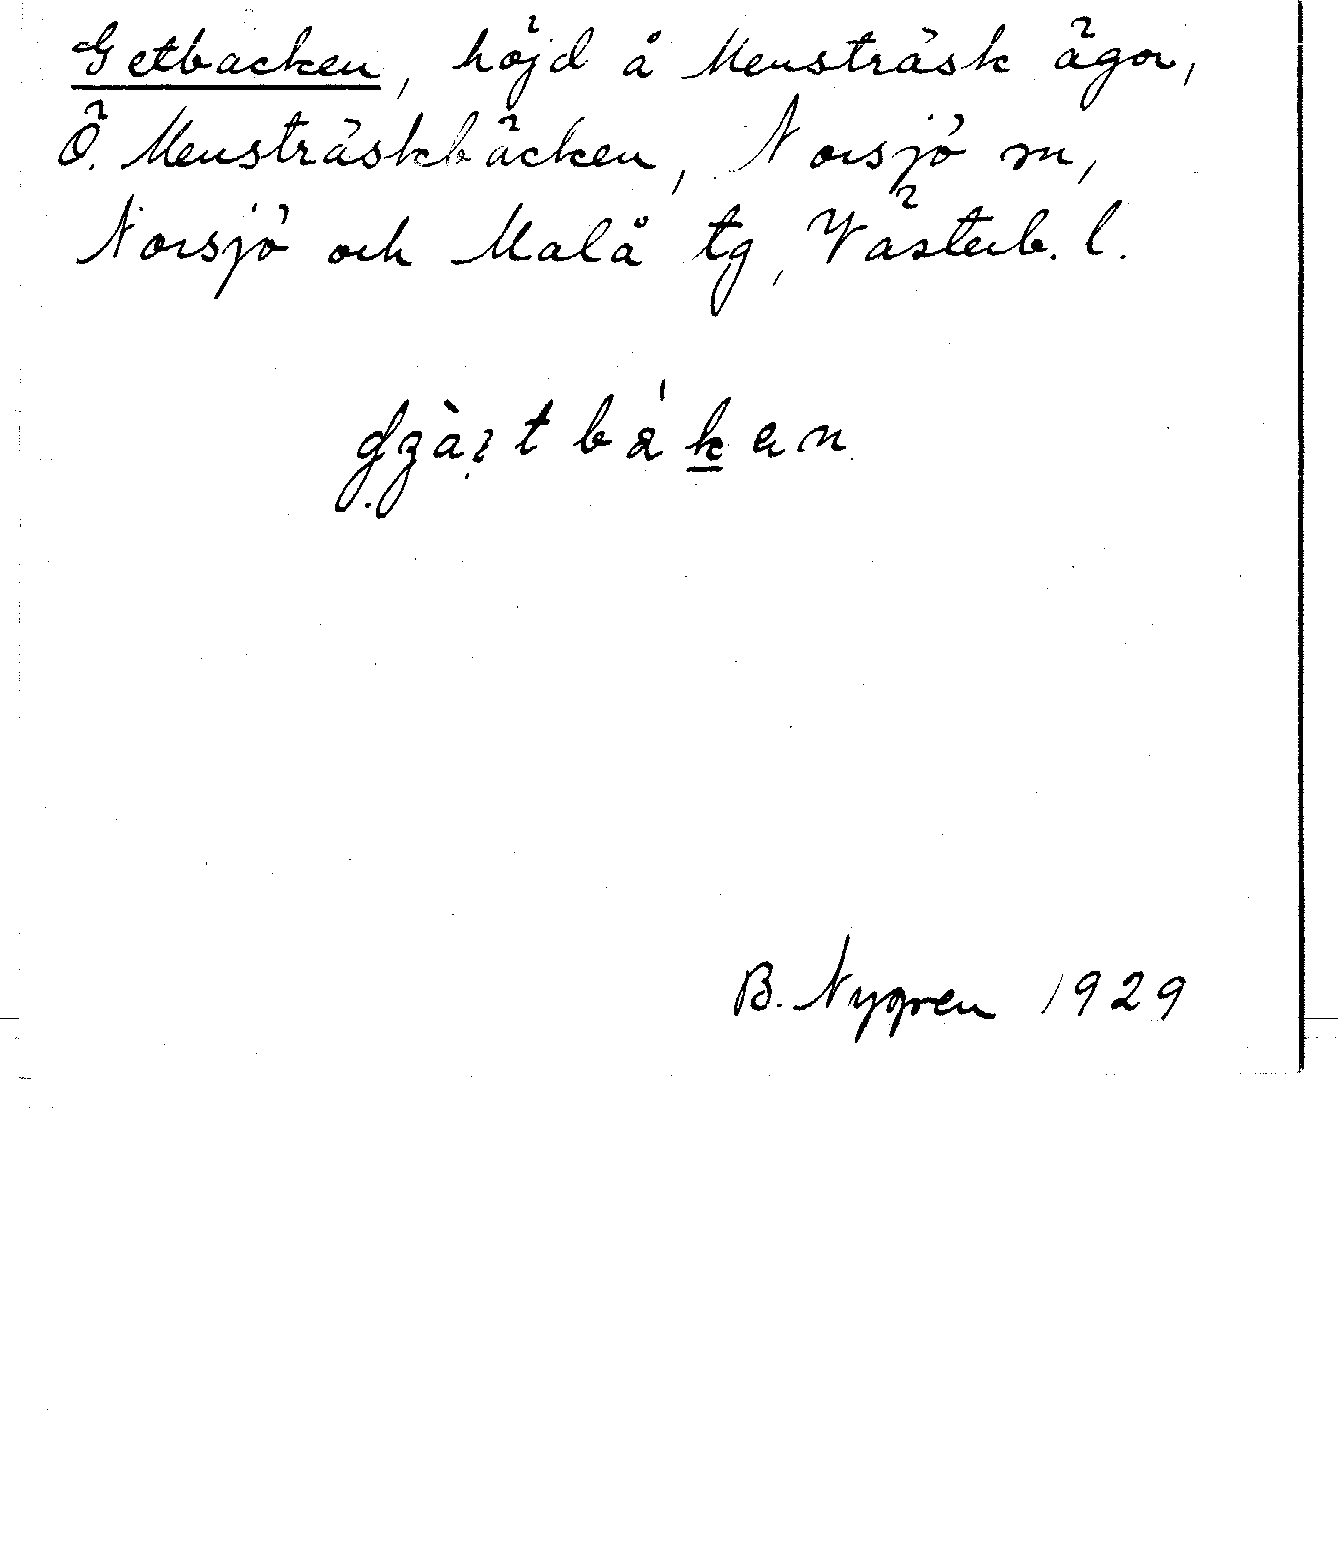 Getbacken, höjd å Mensträsk ägor,
Ö. Mensträskbäcken, Norsjö sn,
Norsjö och Malå tg, Västerb. l.
B. Nygren 1929